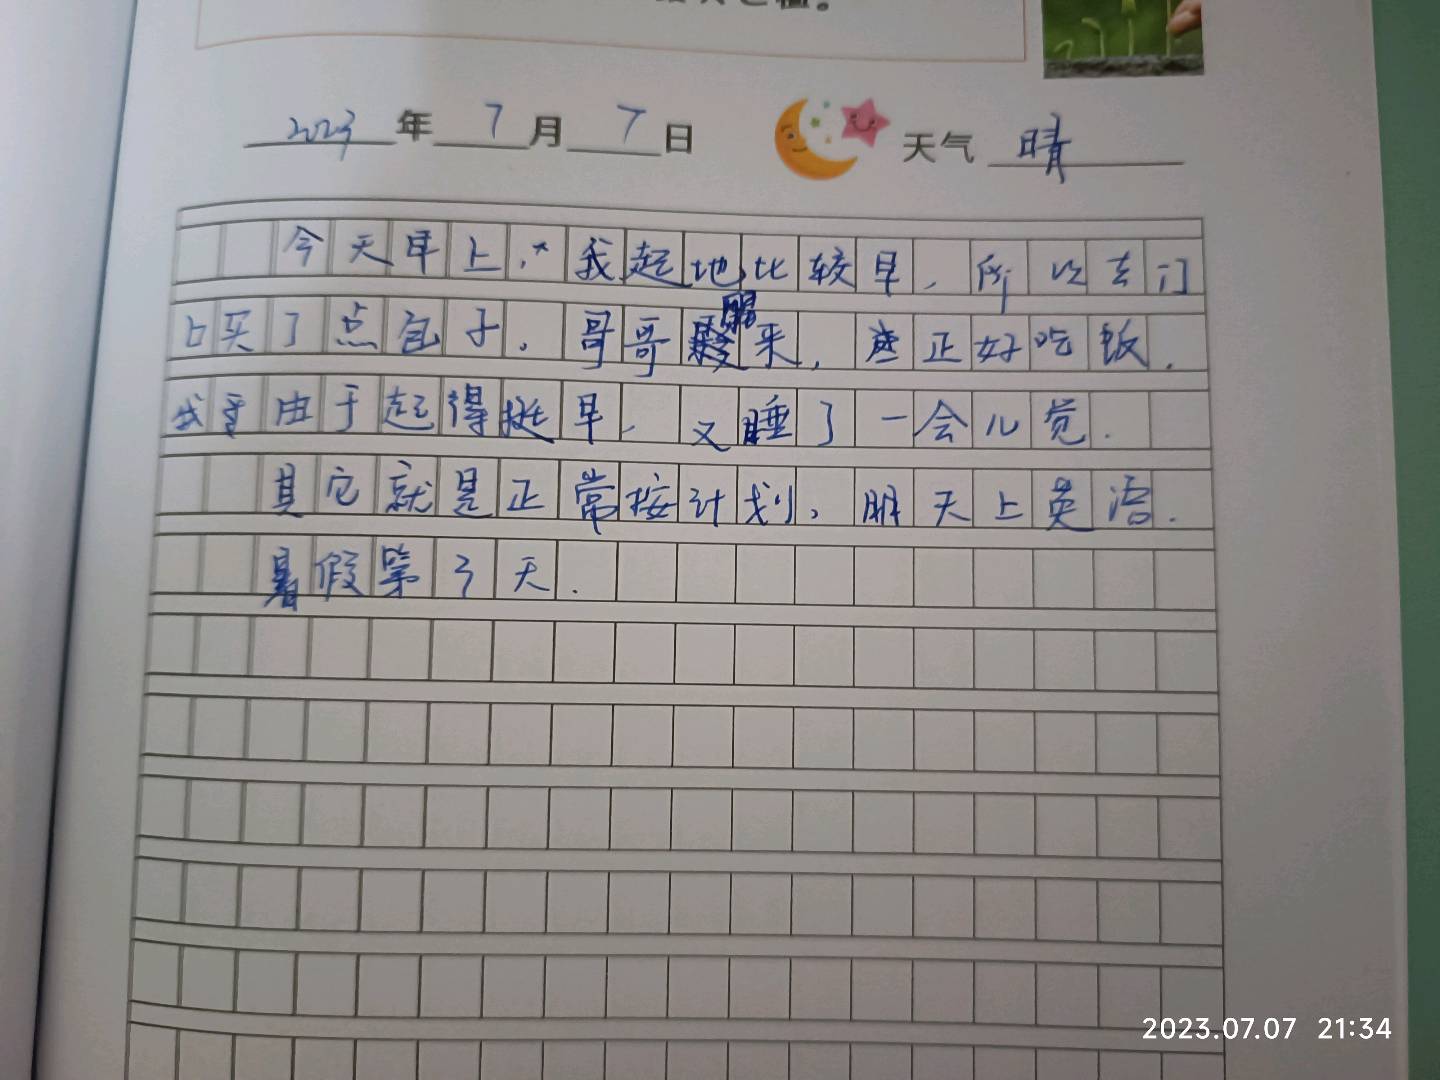 2023年 7月 7日 天气 晴
今天早上,我起地比较早,所以去门
口买了点包子。哥哥醒来,正好吃饭。
我由于起得挺早,又睡了一会儿觉.
其它就是正常按计划,明天上英语.
暑假第3天.
2023.07.07 21:34